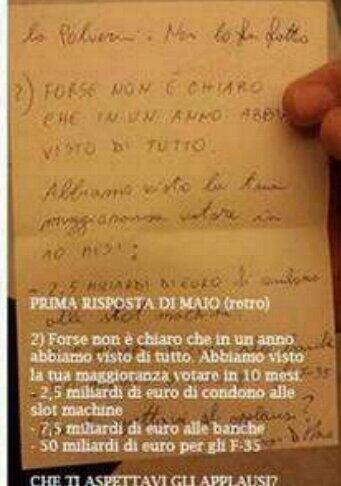 la Polverini. Non lo fu fatto
2) FORSE NON È CHIARO
CHE IN UN ANNO ABBI
VISTO DI TUTTO.
Abbiamo visto la tua
maggioranza votare in
10 MESI:
- 2,5 MILIARDI DI EURO di condono
alle slot machine
PRIMA RISPOSTA DI MAIO (retro)
2) Forse non è chiaro che in un anno
abbiamo visto di tutto. Abbiamo visto
la tua maggioranza votare in 10 mesi:
- 2,5 miliardi di euro di condono alle
slot machine
- 7,5 miliardi di euro alle banche
- 50 miliardi di euro per gli F-35
CHE TI ASPETTAVI GLI APPLAUSI?